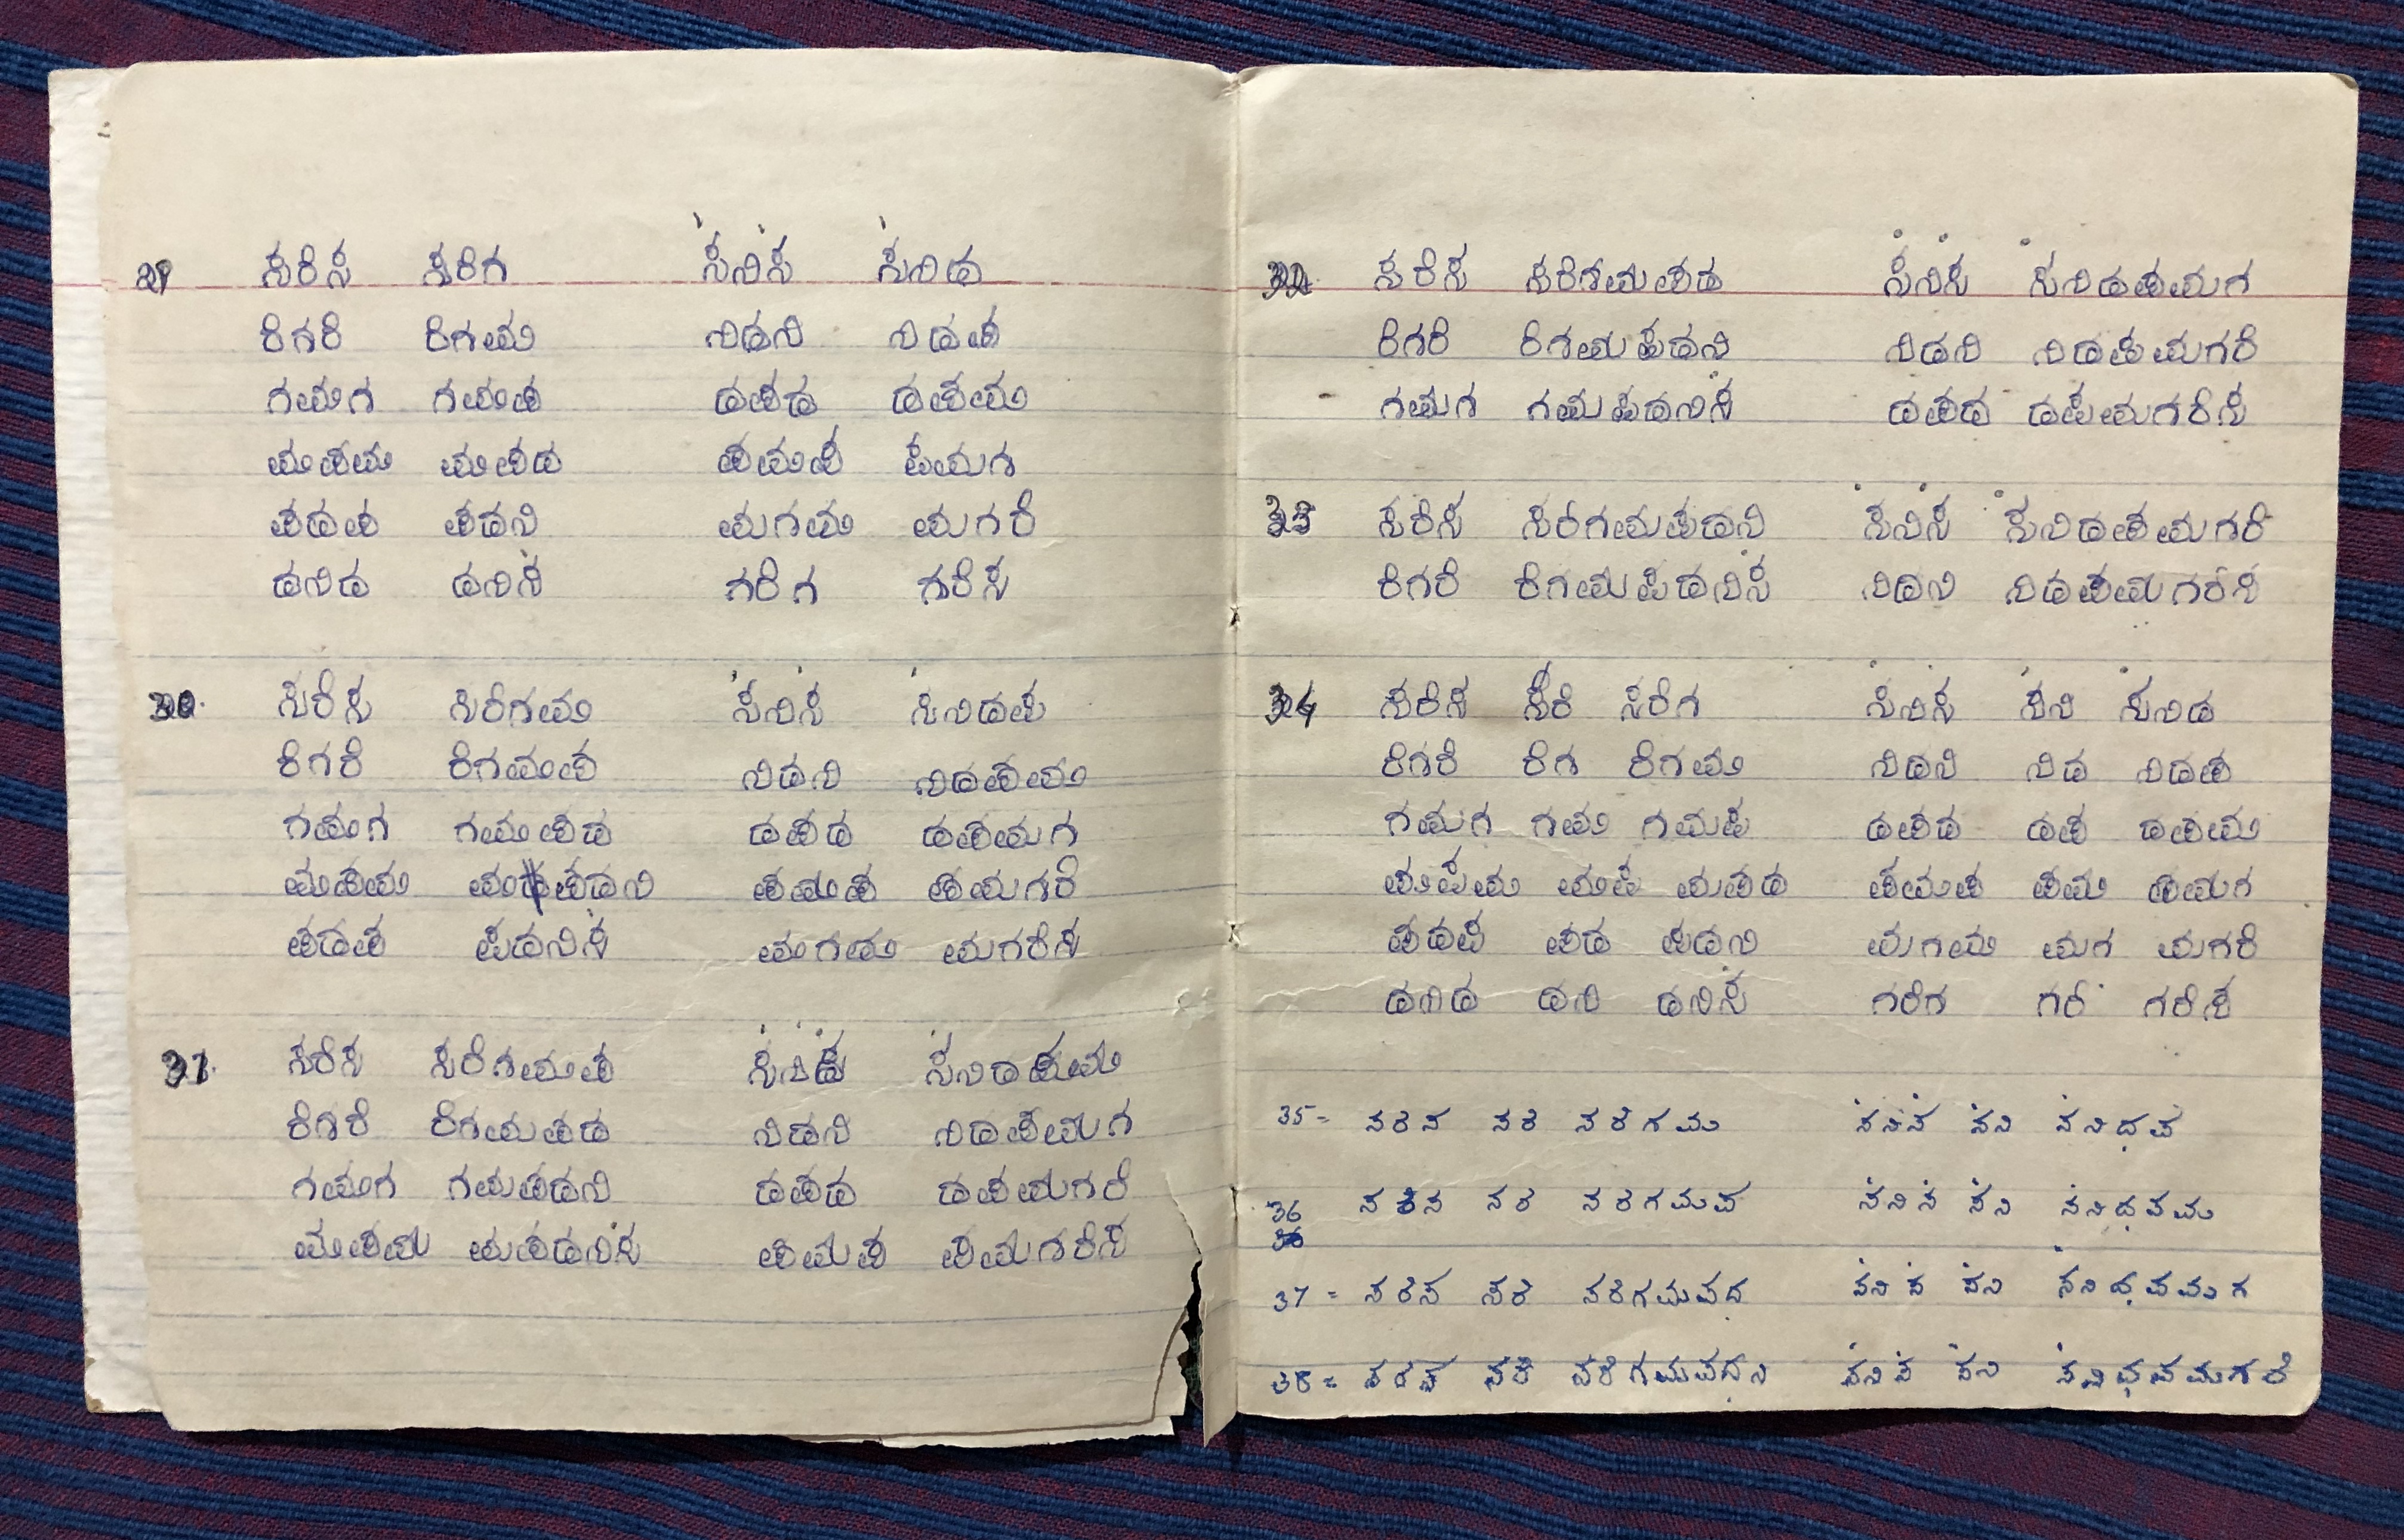 29 ಸರಿಸ ಸರಿಗ ಸ̇ನಿಸ̇ ಸ̇ನಿಡ
ರಿಗರಿ ರಿಗಮ ನಿಡನಿ ನಿಡಪ
ಗಮಗ ಗಮಪ ಡಪಡ ಡಪಮ
ಮಪಮ ಮಪಡ ಪಮಪ ಪಮಗ
ಪಡಪ ಪಡನಿ ಮಗಮ ಮಗರಿ
ಡನಿಡ ಡನಿಸ̇ ಗರಿಗ ಗರಿಸ
30. ಸರಿಸ ಸರಿಗಮ ಸ̇ನಿಸ̇ ಸ̇ನಿಡಪ
ರಿಗರಿ ರಿಗಮಪ ನಿಡನಿ ನಿಡಪಮ
ಗಮಗ ಗಮಪಡ ಡಪಡ ಡಪಮಗ
ಮಪಮ ಮಪಡನಿ ಪಮಪ ಪಮಗರಿ
ಪಡಪ ಪಡನಿಸ̇ ಮಗಮ ಮಗರಿಸ
31. ಸರಿಸ ಸರಿಗಮಪ ಸ̇ನಿಸ̇ ಸ̇ನಿಡಪಮ
ರಿಗರಿ ರಿಗಮಪಡ ನಿಡನಿ ನಿಡಪಮಗ
ಗಮಗ ಗಮಪಡನಿ ಡಪಡ ಡಪಮಗರಿ
ಮಪಮ ಮಪಡನಿಸ̇ ಪಮಪ ಪಮಗರಿಸ
32. ಸರಿಸ ಸರಿಗಮಪಡ ಸ̇ನಿಸ̇ ಸ̇ನಿಡಪಮಗ
ರಿಗರಿ ರಿಗಮಪಡನಿ ನಿಡನಿ ನಿಡಪಮಗರಿ
ಗಮಗ ಗಮಪಡನಿಸ̇ ಡಪಡ ಡಪಮಗರಿಸ
33 ಸರಿಸ ಸರಿಗಮಪಡನಿ ಸ̇ನಿಸ̇ ಸ̇ನಿಡಪಮಗರಿ
ರಿಗರಿ ರಿಗಮಪಡನಿಸ̇ ನಿಡನಿ ನಿಡಪಮಗರಿಸ
34 ಸರಿಸ ಸರಿ ಸರಿಗ ಸ̇ನಿಸ̇ ಸ̇ನಿ ಸ̇ನಿಡ
ರಿಗರಿ ರಿಗ ರಿಗಮ ನಿಡನಿ ನಿಡ ನಿಡಪ
ಗಮಗ ಗಮ ಗಮಪ ಡಪಡ ಡಪ ಡಪಮ
ಮಪಮ ಮಪ ಮಪಡ ಪಮಪ ಪಮ ಪಮಗ
ಪಡಪ ಪಡ ಪಡನಿ ಮಗಮ ಮಗ ಮಗರಿ
ಡನಿಡ ಡನಿ ಡನಿಸ̇ ಗರಿಗ ಗರಿ ಗರಿಸ
35= ಸರಿಸ ಸರಿ ಸರಿಗಮ ಸ̇ನಿಸ̇ ಸ̇ನಿ ಸ̇ನಿಧಪ
36 ಸರಿಸ ಸರಿ ಸರಿಗಮಪ ಸ̇ನಿಸ̇ ಸ̇ನಿ ಸ̇ನಿಧಪಮ
37= ಸರಿಸ ಸರಿ ಸರಿಗಮಪದ ಸ̇ನಿಸ̇ ಸ̇ನಿ ಸ̇ನಿಧಪಮಗ
38= ಸರಿಸ ಸರಿ ಸರಿಗಮಪಧನಿ ಸ̇ನಿಸ̇ ಸ̇ನಿ ಸ̇ನಿಧಪಮಗರಿ